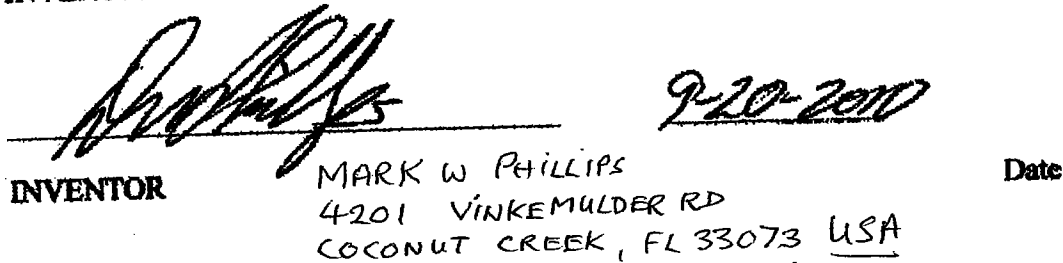 9-20-2010
INVENTOR MARK W PHILLIPS Date
4201 VINKEMULDER RD
COCONUT CREEK, FL 33073 USA